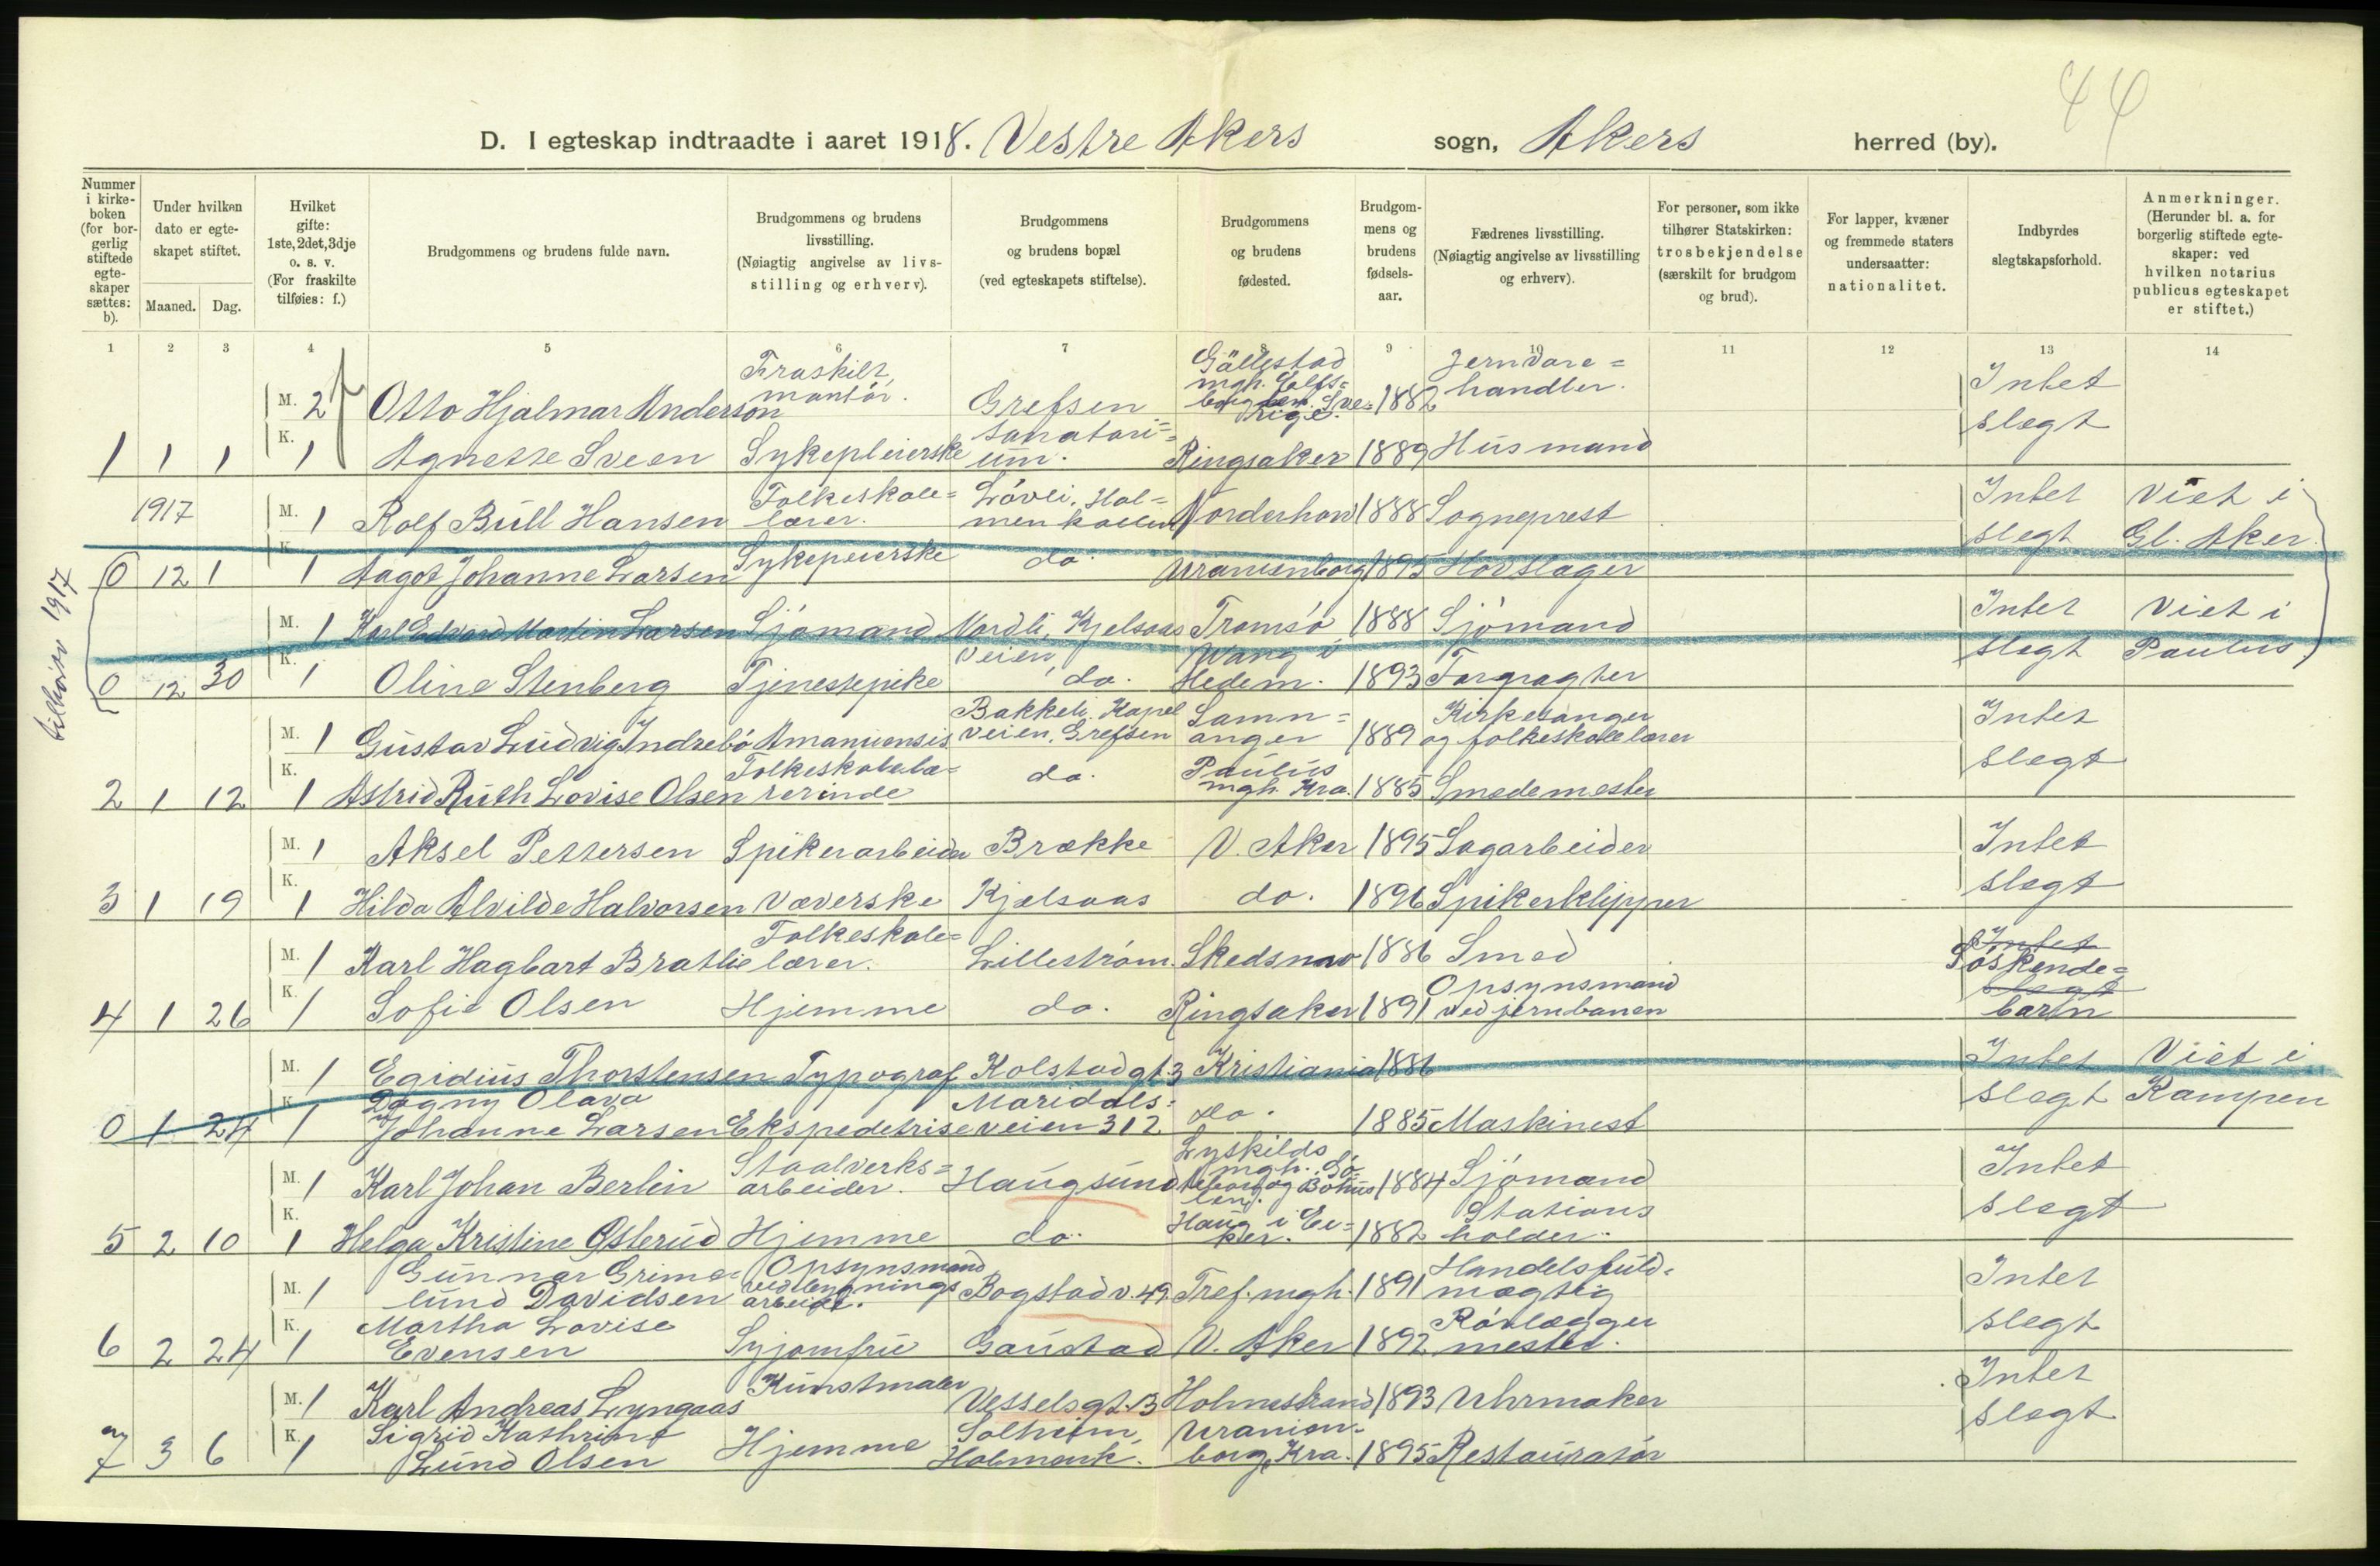 44
D. I egteskap indtraadte i aaret 1918. Vestre Akers sogn, Akers herred (by).
Nummer i kirke-boken (for bor-gerlig stiftede egte-skaper sættes: b).
Under hvilken dato er egte-skapet stiftet.
Maaned. Dag.
Hvilket gifte: 1ste, 2det, 3dje o. s. v. (For fraskilte tilføies: f.)
Brudgommens og brudens fulde navn.
Brudgommens og brudens livsstilling. (Nøiagtig angivelse av livs-stilling og erhverv).
Brudgommens og brudens bopæl (ved egteskapets stiftelse).
Brudgommens og brudens fødested.
Brudgom-mens og brudens fødsels-aar.
Fædrenes livsstilling. (Nøiagtig angivelse av livsstilling og erhverv).
For personer, som ikke tilhører Statskirken: trosbekjendelse (særskilt for brudgom og brud).
For lapper, kvæner og fremmede staters undersaatter: nationalitet.
Indbyrdes slegtskapsforhold.
Anmerkninger. (Herunder bl. a. for borgerlig stiftede egte-skaper: ved hvilken notarius publicus egteskapet er stiftet.)
1 2 3 4 5 6 7 8 9 10 11 12 13 14
M. 2 f Otto Hjalmar Anderson Fraskilt, montör. Grefsen Gällestad mgh. Elfs=borg len. Sve=rige. 1882 Jernvare=handler. Intet
1 1 1 K. 1 Agnette Sveen Sykepleierske sanatori=um. Ringsaker 1889 Husmand slegt
1917 M. 1 Rolf Bull Hansen Folkeskole=lærer. Lövli, Hol=menkollen Norderhov 1888 Sogneprest Intet Viet i
0 12 1 K. 1 Aagot Johanne Larsen Sykepeierske do. Uranienborg 1895 Hovslager slegt Gl. Aker.
tilhører 1917
M. 1 Karl Edvard Martin Larsen Sjömand Nordli, Kjelsaas Tromsö 1888 Sjömand Intet Viet i
0 12 30 K. 1 Oline Stenberg Tjenestepike veien, do. Wang i Hedem. 1893 Forpagter slegt Paulus
M. 1 Gustav Ludvig Indrebö Amanuensis Bakkeli. Kapel veien. Grefsen Samn=anger 1889 Kirkesanger og folkeskolelærer Intet
2 1 12 K. 1 Astrid Ruth Lovise Olsen Folkeskolelæ=rerinde do. Paulus mgh. Kra. 1885 Smedemester slegt
M. 1 Aksel Pettersen Spikerarbeider Brække V. Aker 1895 Sagarbeider Intet
3 1 19 K. 1 Hilda Alvilde Halvorsen Væverske Kjelsaas do. 1896 Spikerklipper slegt
M. 1 Karl Hagbart Bratlie Folkeskole=lærer. Lilleström Skedsmo 1886 Smed Intet Söskende=
4 1 26 K. 1 Sofie Olsen Hjemme do. Ringsaker 1891 Opsynsmand ved jernbanen slegt barn
M. 1 Egidius Thorstensen Typograf Kolstadgt. 3 Kristiania 1886 Intet Viet i
0 1 24 K. 1 Dagny Olava Johanne Larsen Ekspedetrise Maridals=veien 312 do. 1885 Maskinest slegt Kampen
M. 1 Karl Johan Berlin Staalverks=arbeider. Haugsund Lyskilds mgh. Gö=teborg og Bohus len. 1884 Sjömand Intet
5 2 10 K. 1 Helga Kristine Østerud Hjemme do. Haug i Ei=ker. 1882 Stations holder. slegt
M. 1 Gunnar Grime=lund Davidsen Opsynsmand ved bygnings arbeide. Bogstadv. 49. Tref. mgh. 1891 Handelsfuld=mægtig Intet
6 2 24 K. 1 Martha Lovise Evensen Syjomfru Gaustad V. Aker 1892 Rörlægger mester. slegt
M. 1 Karl Andreas Lyngaas Kunstmaler Vesselsgt. 13 Holmestrand 1893 Uhrmaker Intet
7 3 6 K. 1 Sigrid Kathrine Lund Olsen Hjemme Solheim, Holmenk. Uranien=borg, Kra. 1895 Restauratör slegt